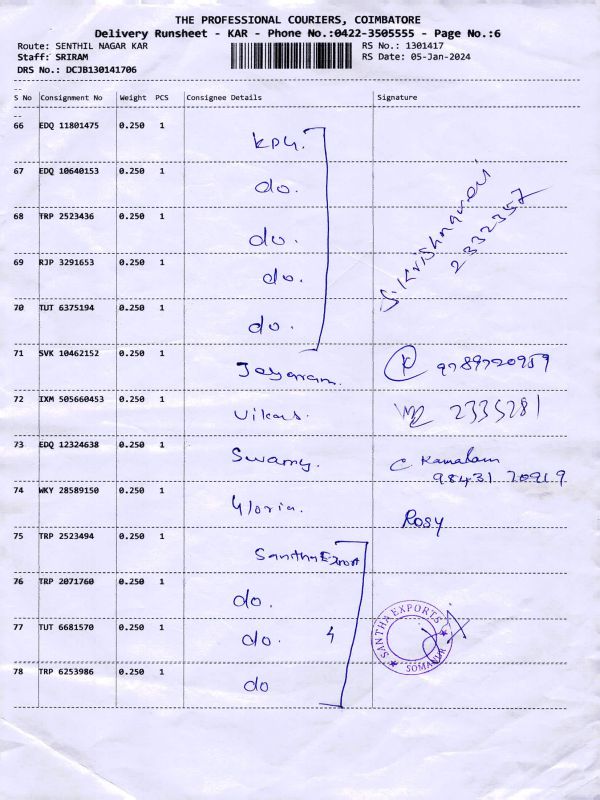 THE PROFESSIONAL COURIERS, COIMBATORE
Delivery Runsheet - KAR - Phone No.:0422-3505555 - Page No.:6
Route: SENTHIL NAGAR KAR
RS No.: 1301417
Staff: SRIRAM
RS Date: 05-Jan-2024
DRS No.: DCJB130141706
S No Consignment No Weight PCS Consignee Details Signature
66 EDQ 11801475 0.250 1
67 EDQ 10640153 0.250 1 do.
68 TRP 2523436 0.250 1 do.
69 RJP 3291653 0.250 1 do.
70 TUT 6375194 0.250 1 do.
S. Krishnaveni
2332357
71 SVK 10462152 0.250 1 Jayaram. K 9789720959
72 IXM 505660453 0.250 1 Vikas. 2335281
73 EDQ 12324638 0.250 1 Swamy. C Kamalam
98431 70919
74 WKY 28589150 0.250 1 Gloria. Rosy
75 TRP 2523494 0.250 1 Santha Export
76 TRP 2071760 0.250 1 do.
77 TUT 6681570 0.250 1 do. 4
78 TRP 6253986 0.250 1 do
SANTHA EXPORTS
SOMANUR